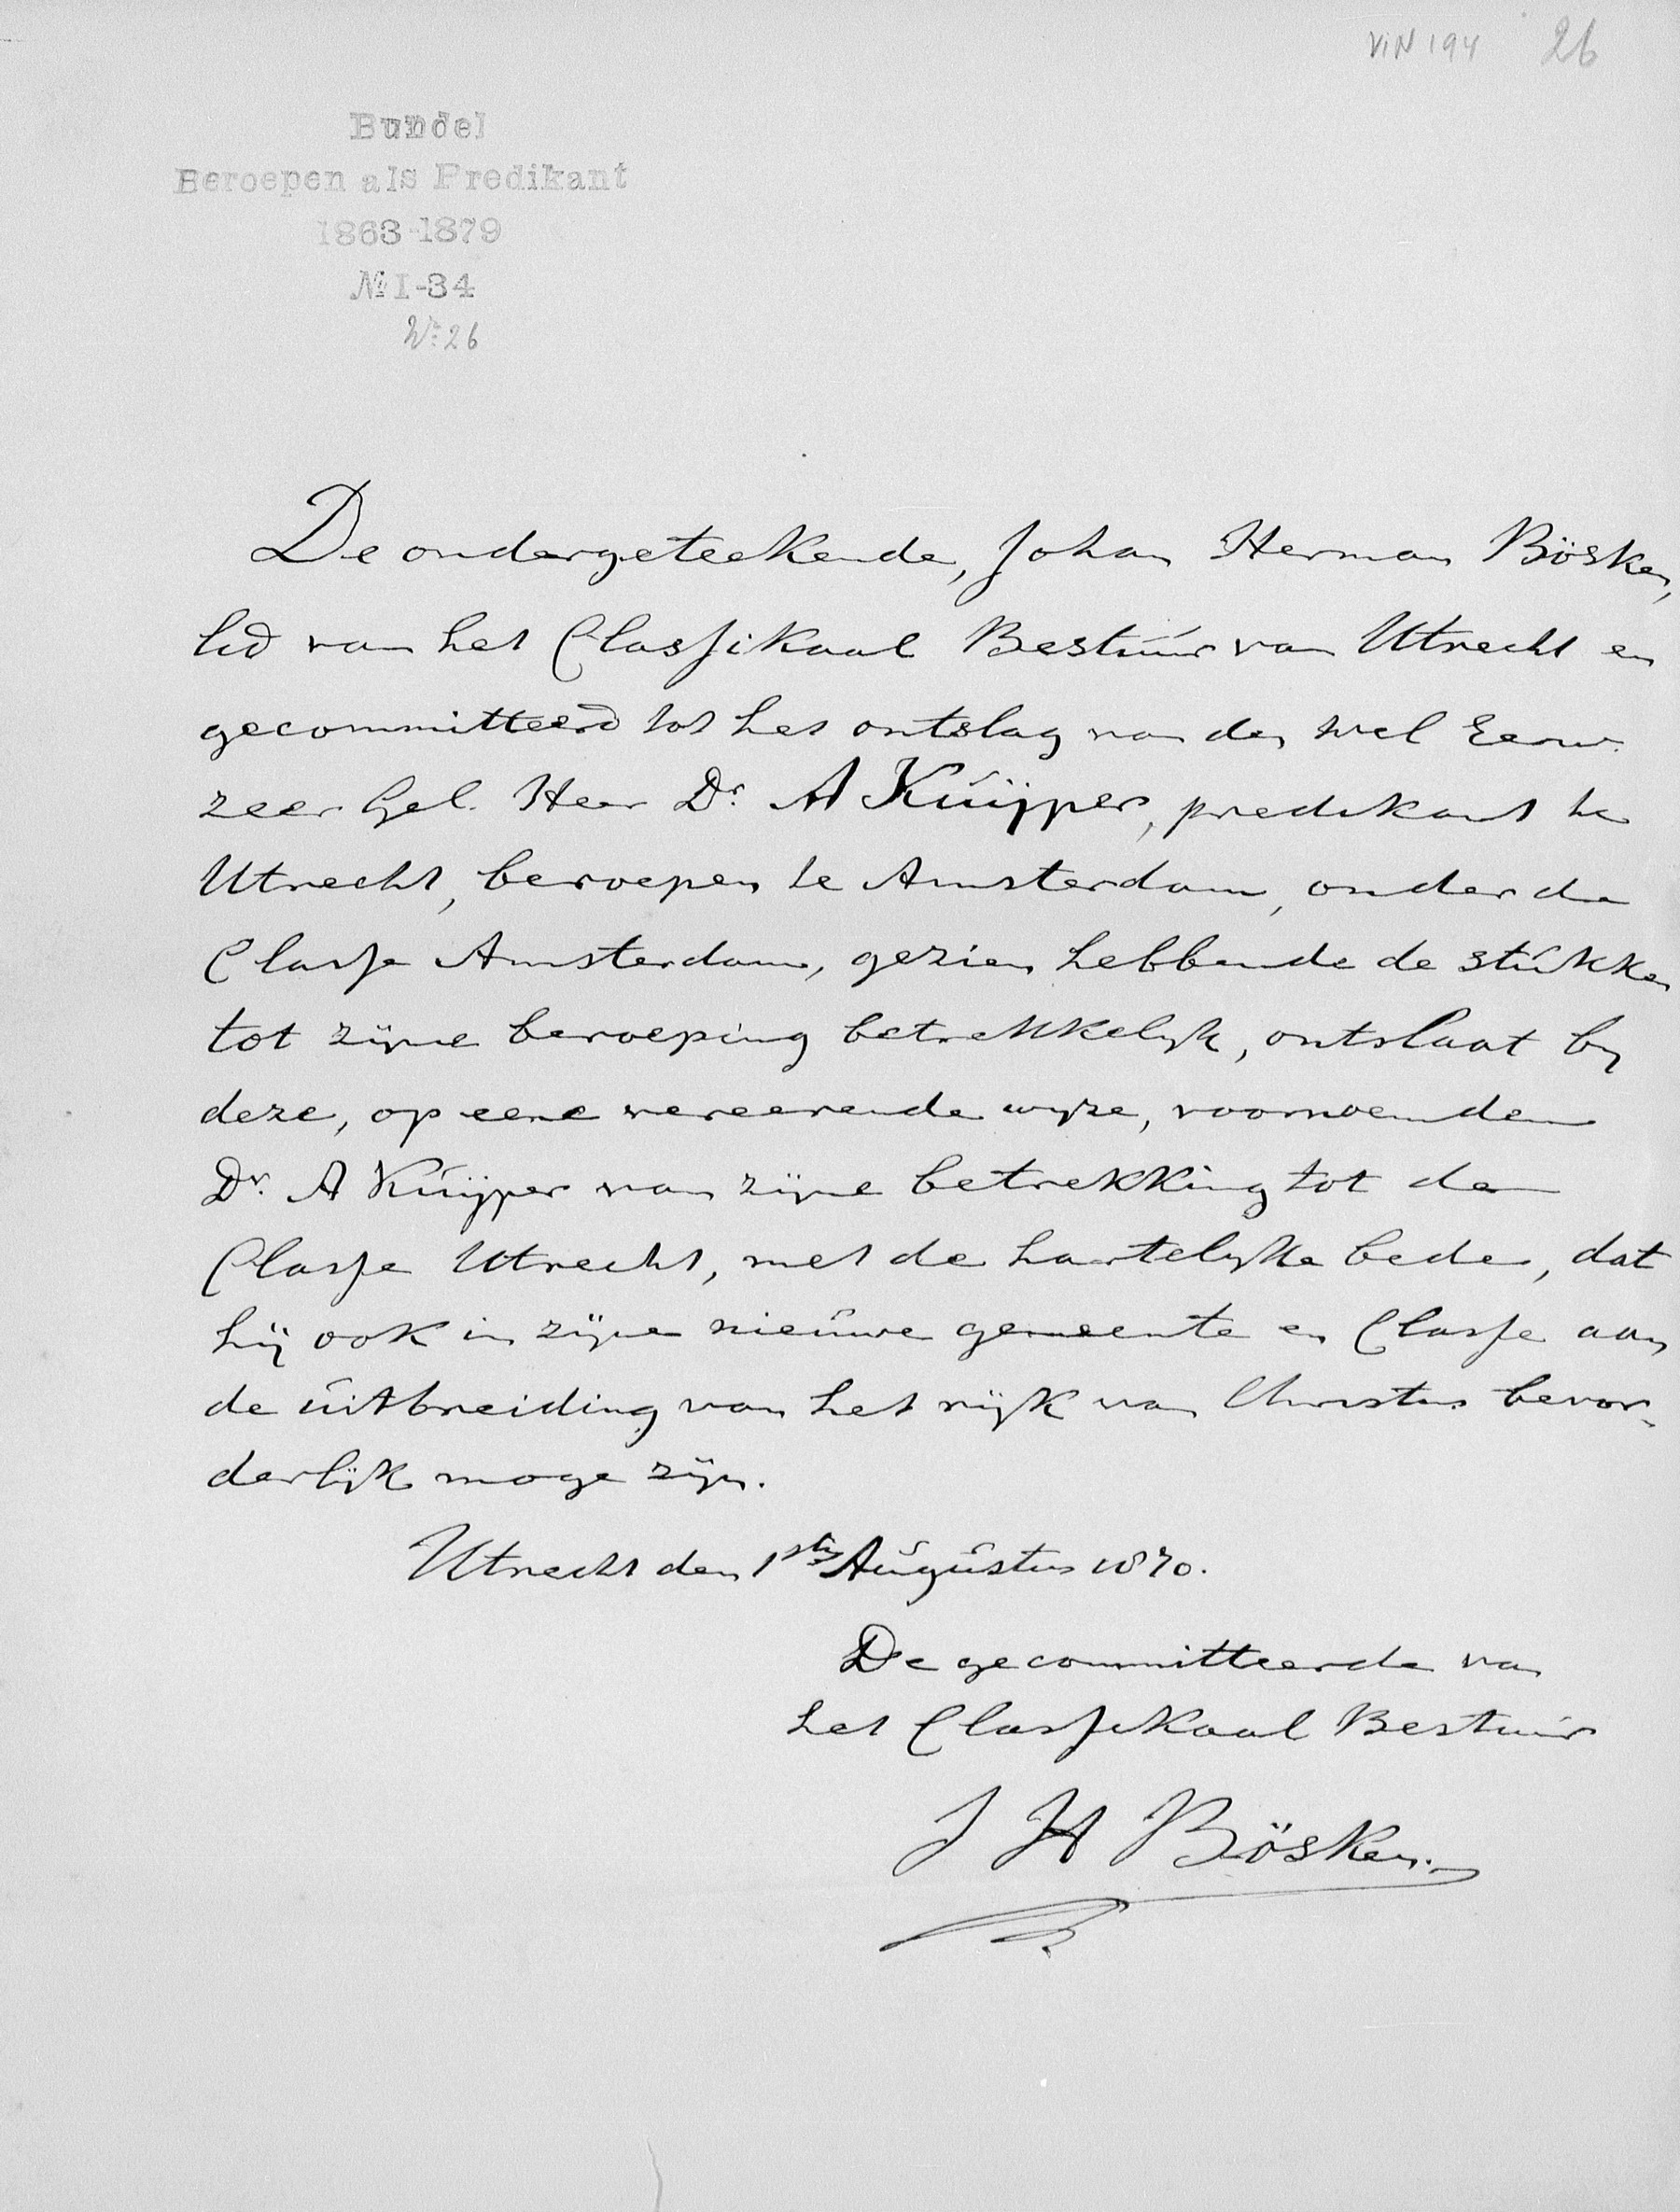 VIN 194 26
Bundel
Beroepen als Predikant
1863-1879
№ I-34
No 26
De ondergeteekende, Johan Herman Bösken,
lid van het Classikaal Bestuur van Utrecht en
gecommitteerd tot het ontslag van den wel Eerw.
zeer Gel. Heer Dr. A Kuijper, predikant te
Utrecht, beroepen te Amsterdam, onder de
Classe Amsterdam, gezien hebbende de stukken
tot zijne beroeping betrekkelijk, ontslaat by
deze, op eene vereerende wijze, voornoemden
Dr. A Kuijper van zijne betrekking tot de
Classe Utrecht, met de hartelijke bede, dat
hij ook in zijne nieuwe gemeente en Classe aan
de uitbreiding van het rijk van Christus bevor-
derlijk moge zijn.
Utrecht den 1sten Augustus 1870.
De gecommitteerde van
het Classikaal Bestuur
J H Bösken.